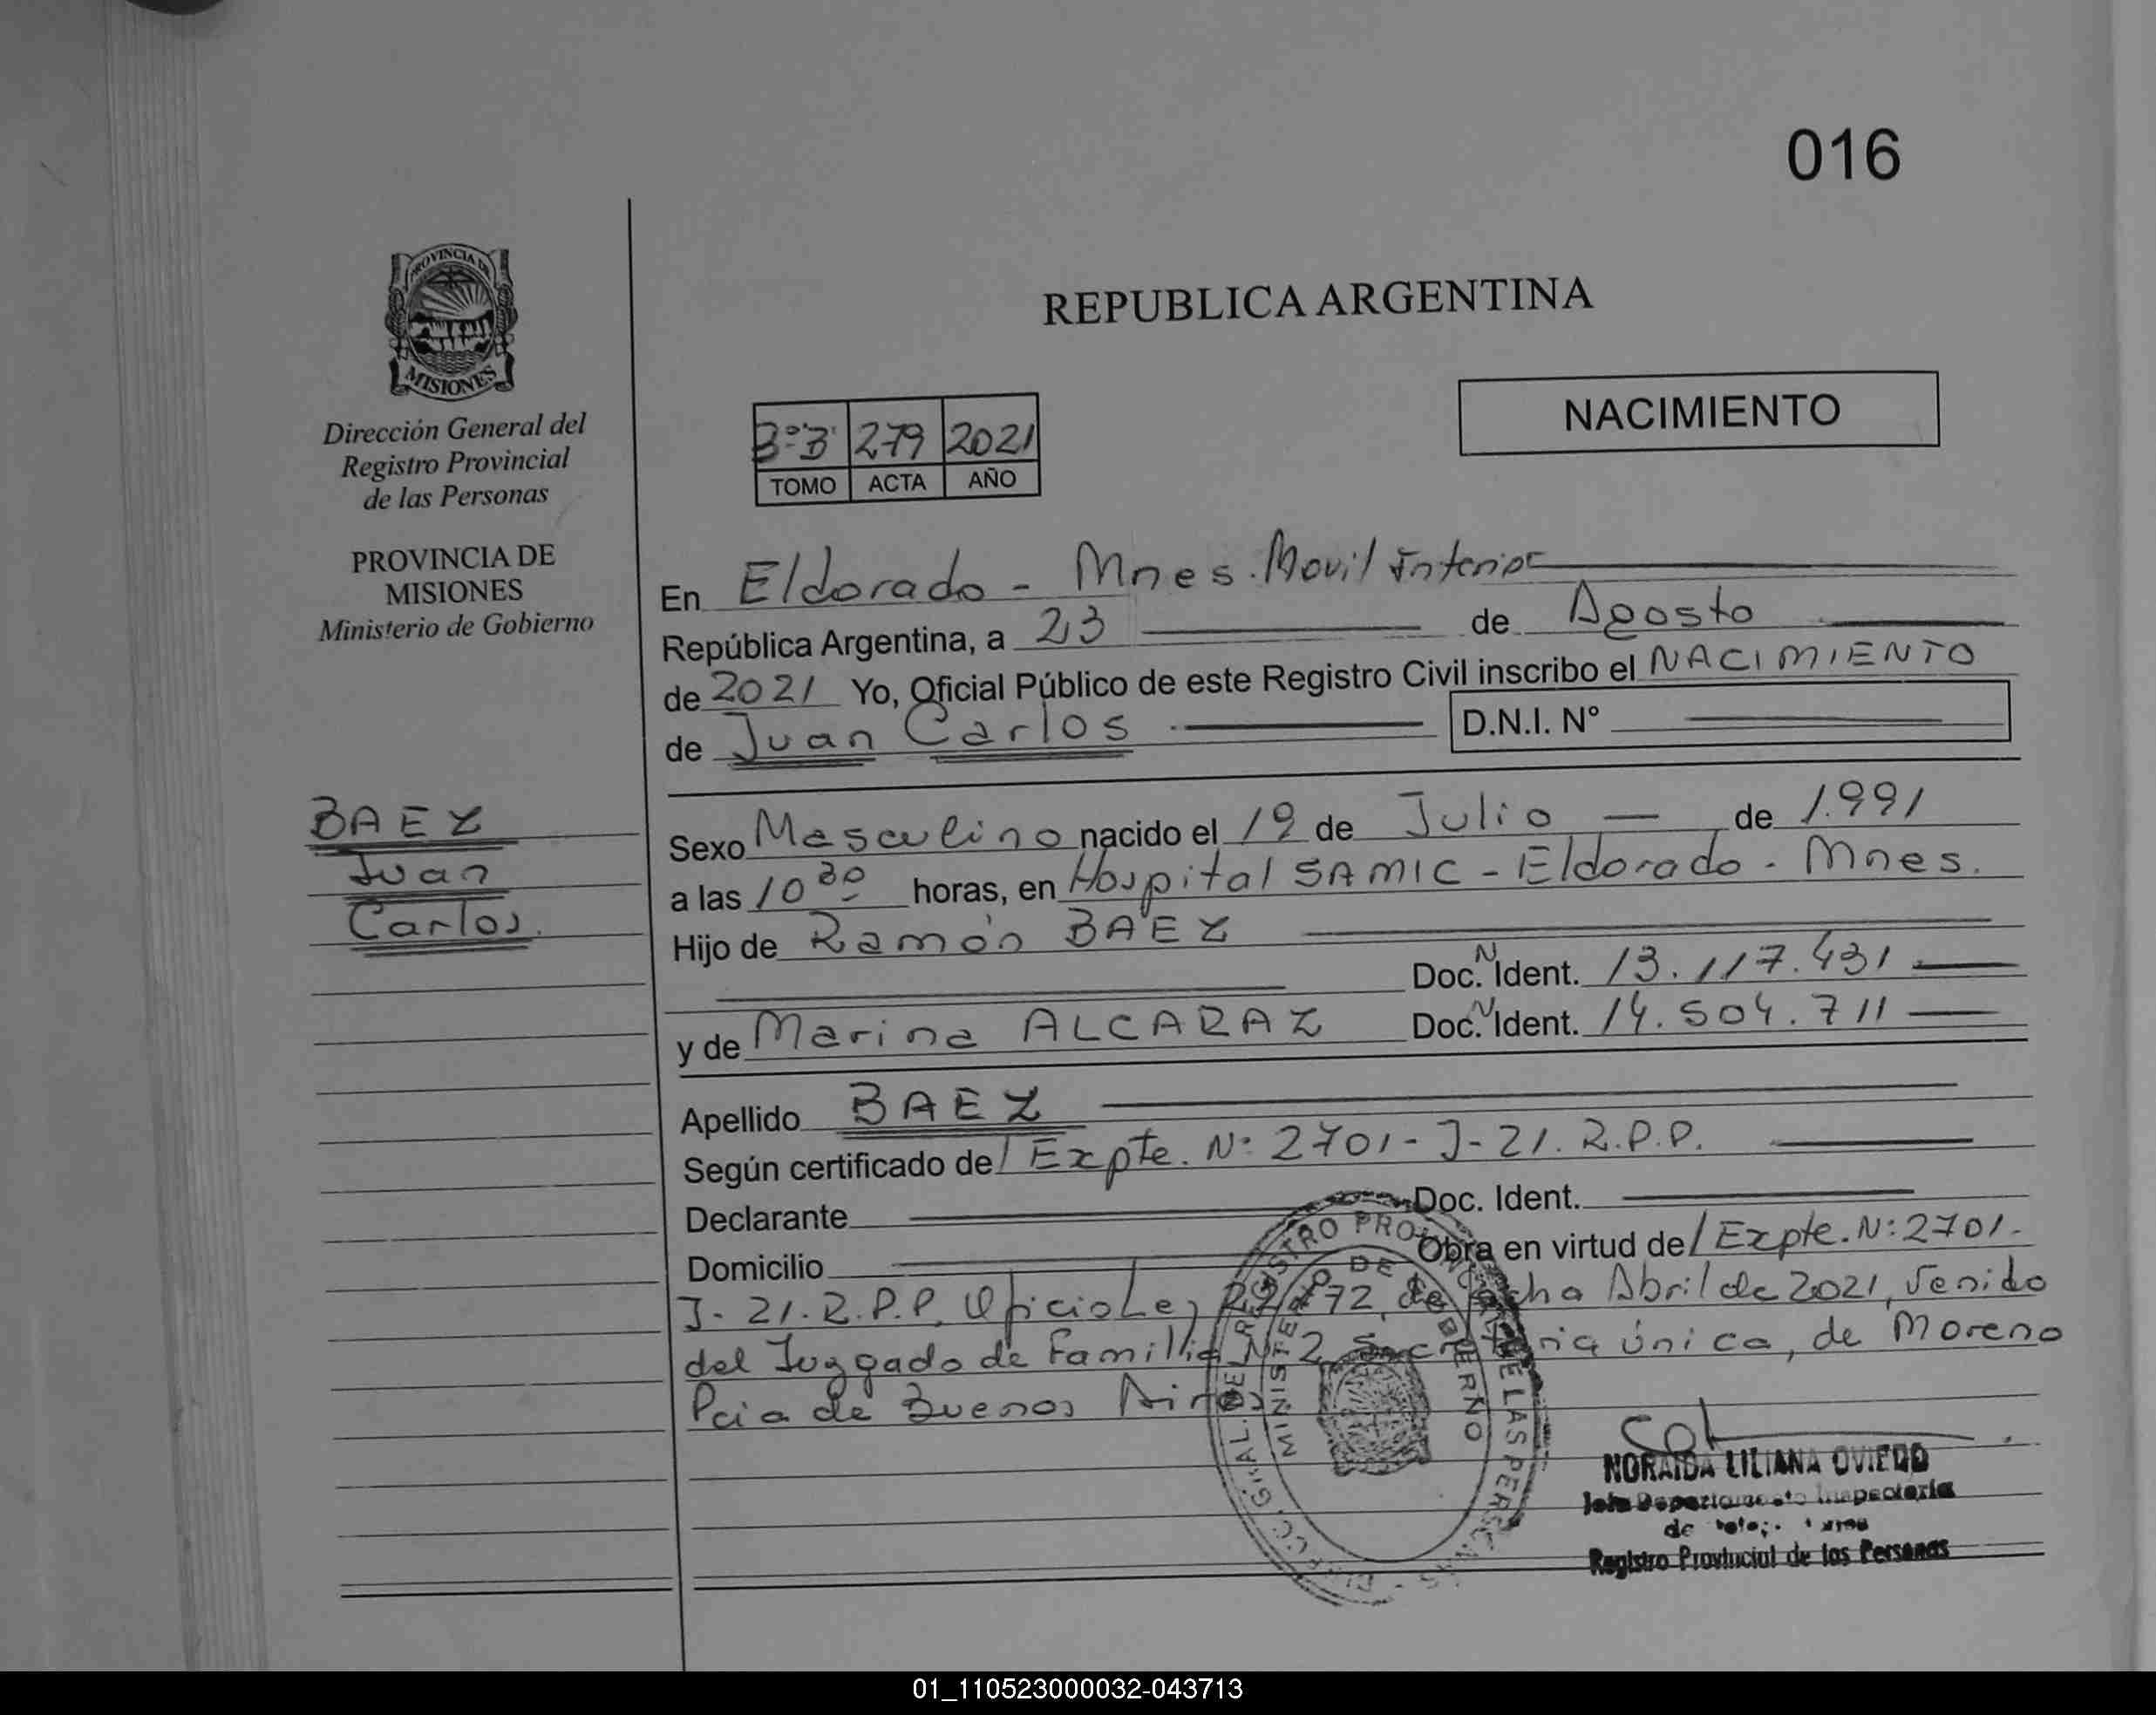 016
PROVINCIA DE
MISIONES
Dirección General del
Registro Provincial
de las Personas
PROVINCIA DE
MISIONES
Ministerio de Gobierno
BAEZ
Juan
Carlos.
REPUBLICA ARGENTINA
NACIMIENTO
3º"B" 279 2021
TOMO ACTA AÑO
En Eldorado - Mnes. Movil Interior
República Argentina, a 23 de Agosto
de 2021 Yo, Oficial Público de este Registro Civil inscribo el NACIMIENTO
de Juan Carlos D.N.I. Nº
Sexo Masculino nacido el 19 de Julio de 1.991
a las 10 30 horas, en Hospital SAMIC - Eldorado - Mnes.
Hijo de Ramón BAEZ
Doc. N Ident. 13.117.431
y de Marina ALCARAZ Doc. N Ident. 14.504.711
Apellido BAEZ
Según certificado de/ Expte. Nº 2701-J-21. R.P.P.
Declarante Doc. Ident.
Domicilio Obra en virtud de/ Expte. Nº 2701-
J-21. R.P.P. Oficio Ley 22172, de fecha Abril de 2021, venido
del Juzgado de Familia Nº 2 Secretaria única, de Moreno
Pcia de Buenos Aires
DIRECC. GRAL. DE REGISTRO PROVINCIAL DE LAS PERSONAS
MINISTERIO DE GOBIERNO
NORAIDA LILIANA OVIEDO
Jefa Departamento Inspectoria
de
Registro Provincial de las Personas
01_110523000032-043713